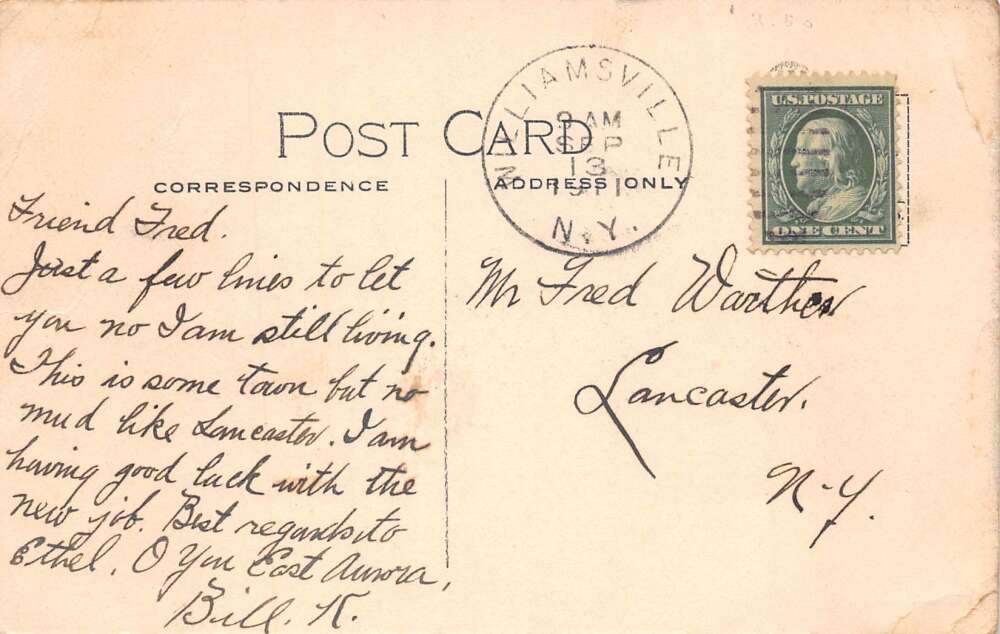 POST CARD
CORRESPONDENCE
ADDRESS ONLY
WILLIAMSVILLE
9 AM
SEP
13
1911
N.Y.
U.S. POSTAGE
ONE CENT
Friend Fred.
Just a few lines to let
you no I am still living.
This is some town but no
mud like Lancaster. I am
having good luck with the
new job. Best regards to
Ethel. O You East Aurora,
Bill. K.
Mr Fred Warther
Lancaster.
N-Y.